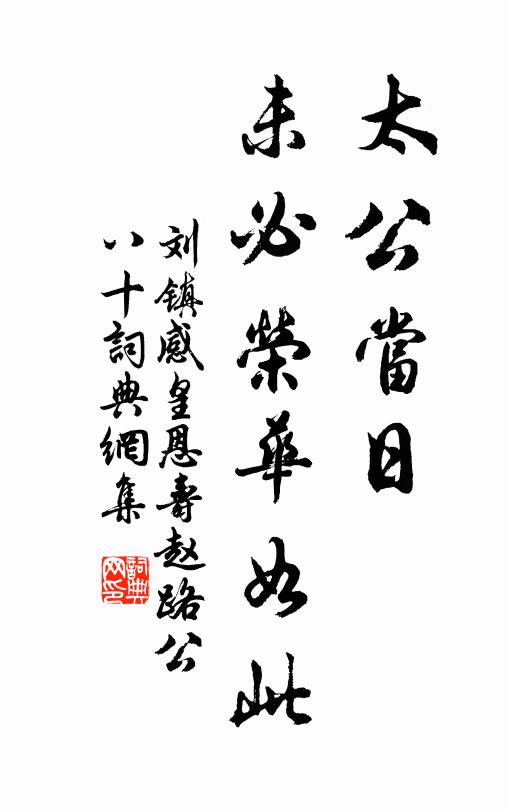 太公當日
未必榮華如此
刘镇感皇恩壽赵路公
八十詞典網集
詞典网印